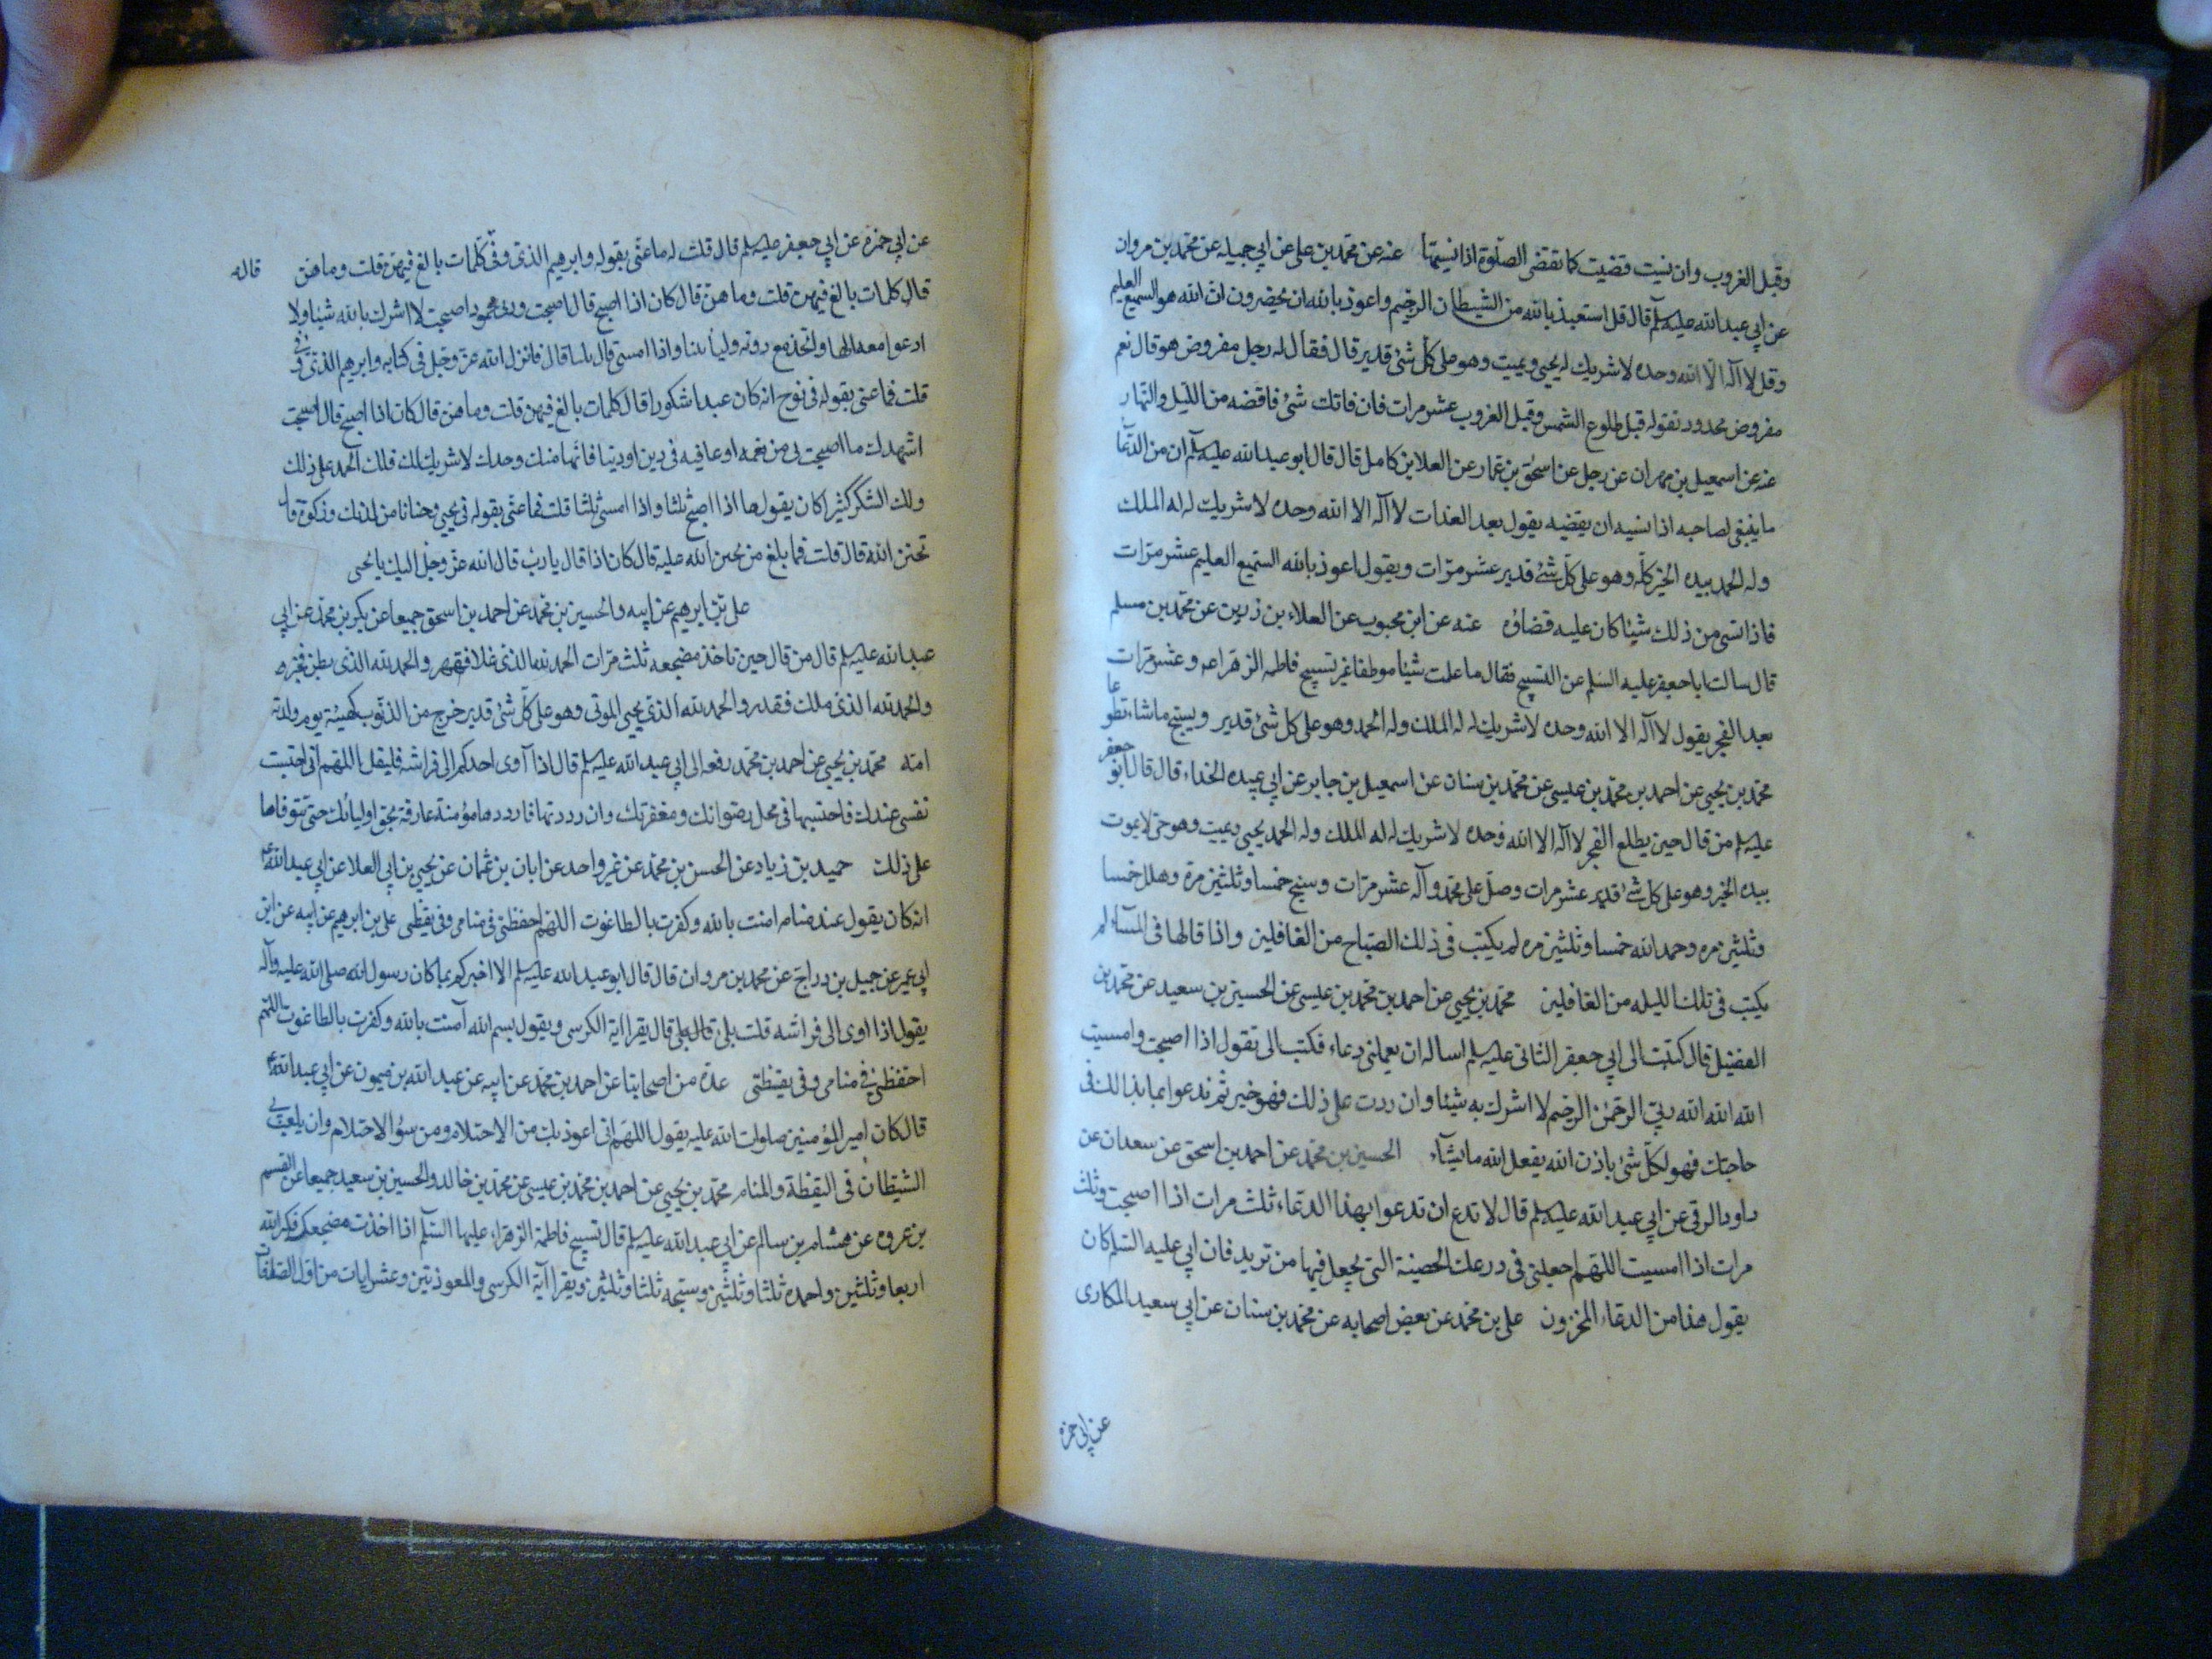 وقبل الغروب وان نسيت قضيت كما تقضى الصلوة اذا نسيتها عنه عن محمد بن على عن ابي جميله عن محمد بن مروان
عن ابي عبد الله عليه سلم قال قل استعيذ بالله من الشيطان الرجيم واعوذ بالله ان يحضرون ان الله هو السميع العليم
وقل لا اله الا الله وحده لا شريك له يحيى ويميت وهو على كل شئ قدير قال فقال له رجل مفروض هو قال نعم
مفروض محدود تقوله قبل طلوع الشمس وقبل الغروب عشر مرات فان فاتك شئ فاقضه من الليل والنهار
عنه عن اسمعيل بن مهران عن رجل عن اسحق بن عمار عن العلا بن كامل قال قال ابو عبد الله عليه سلم ان من الدعا
ما ينبغى لصاحبه اذا نسيه ان يقضيه يقول بعد الغداة لا اله الا الله وحده لا شريك له له الملك
وله الحمد بيده الخير كله وهو على كل شئ قدير عشر مرات ويقول اعوذ بالله السميع العليم عشر مرات
فاذا نسى من ذلك شيئا كان عليه قضاؤه عنه عن ابن محبوب عن العلاء بن رزين عن محمد بن مسلم
قال سالت ابا جعفر عليه السلم عن التسبيح فقال ما علمت شيئا موظفا غير تسبيح فاطمه الزهرا عه وعشر مرات
بعد الفجر يقول لا اله الا الله وحده لا شريك له له الملك وله الحمد وهو على كل شئ قدير ويسبح ما شاء تطوعا
محمد بن يحيى عن احمد بن محمد بن عيسى عن محمد بن سنان عن اسمعيل بن جابر عن ابي عبيده الحذاء قال قال ابو جعفر
عليه سلم من قال حين يطلع الفجر لا اله الا الله وحده لا شريك له له الملك وله الحمد يحيى ويميت وهو حى لا يموت
بيده الخير وهو على كل شئ قدير عشر مرات وصلى على محمد وآله عشر مرات وسبح خمسا وثلثين مرة وهلل خمسا
وثلثين مره وحمد الله خمسا وثلثين مره لم يكتب فى ذلك الصباح من الغافلين واذا قالها فى المسآء لم
يكتب فى تلك الليله من الغافلين محمد بن يحيى عن احمد بن محمد بن عيسى عن الحسين بن سعيد عن محمد بن
الفضيل قال كتبت الى ابي جعفر الثانى عليه سلم اساله ان يعلمنى دعاء فكتب الى تقول اذا اصبحت وامسيت
الله الله الله ربى الرحمن الرحيم لا اشرك به شيئا وان زدت على ذلك فهو خير ثم تدعوا بما بدا لك فى
حاجتك فهو لكل شئ باذن الله يفعل الله ما يشآء الحسين بن محمد عن احمد بن اسحق عن سعدان عن
داود الرقى عن ابي عبد الله عليه سلم قال لا تدع ان تدعوا بهذا الدعاء ثلث مرات اذا اصبحت وثلث
مرات اذا امسيت اللهم اجعلنى فى درعك الحصينة التى تجعل فيها من تريد فان ابي عليه السلم كان
يقول هذا من الدعاء المخزون على بن محمد عن بعض اصحابه عن محمد بن سنان عن ابي سعيد المكارى
عن ابي حمزه
عن ابي حمزه عن ابي جعفر عليه سلم قال قلت له ما عنى بقوله وابرهيم الذى وفى قال كلمات بالغ فيهن قلت وما هن قاله
قال كلمات بالغ فيهن قلت وما هن قال كان اذا اصبح قال اصبحت وربى محمود اصبحت لا اشرك بالله شيئا ولا
ادعوا معه الها ولا اتخذ من دونه وليا ثلثا واذا امسى قال ثلثا قال فانزل الله عز وجل فى كتابه وابرهيم الذى وفى
قلت فما عنى بقوله فى نوح انه كان عبدا شكورا قال كلمات بالغ فيهن قلت وما هن قال كان اذا اصبح قال اصبحت
اشهدك ما اصبحت بى من نعمه او عافيه فى دين او دنيا فانها منك وحدك لا شريك لك فلك الحمد على ذلك
ولك الشكر كثيرا كان يقولها اذا اصبح ثلثا واذا امسى ثلثا قلت فما عنى بقوله فى يحيى وحنانا من لدنك وزكوة قال
تحنن الله قال قلت فما بلغ من تحنن الله عليه قال كان اذا قال يا رب قال الله عز وجل لبيك يا يحيى
على بن ابرهيم عن ابيه والحسين بن محمد عن احمد بن اسحق جميعا عن بكر بن محمد عن ابي
عبد الله عليه سلم قال من قال حين ياخذ مضجعه ثلث مرات الحمد لله الذى علا فقهر والحمد لله الذى بطن فخبر
والحمد لله الذى ملك فقدر والحمد لله الذى يحيى الموتى وهو على كل شئ قدير خرج من الذنوب كهيئة يوم ولدته
امه محمد بن يحيى عن احمد بن محمد رفعه الى ابي عبد الله عليه سلم قال اذا آوى احدكم الى فراشه فليقل اللهم انى احتبست
نفسى عندك فاحتبسها فى محل رضوانك ومغفرتك وان رددتها فارددها مؤمنة عارفة بحق اوليائك حتى تتوفاها
على ذلك حميد بن زياد عن الحسن بن محمد عن غير واحد عن ابان بن عثمان عن يحيى بن ابي العلا عن ابي عبد الله
انه كان يقول عند منامه امنت بالله وكفرت بالطاغوت اللهم احفظنى فى منامى وفى يقظتى على بن ابرهيم عن ابيه عن ابن
ابي عمير عن جميل بن دراج عن محمد بن مروان قال قال ابو عبد الله عليه سلم الا اخبركم بما كان رسول الله صلى الله عليه وآله
يقول اذا اوى الى فراشه قلت بلى قال بلى قال يقرا اية الكرسى ويقول بسم الله آمنت بالله وكفرت بالطاغوت اللهم
احفظنى فى منامى وفى يقيظتى عدة من اصحابنا عن احمد بن محمد عن ابيه عن عبد الله بن ميمون عن ابي عبد الله
قال كان امير المؤمنين صلوات الله عليه يقول اللهم انى اعوذ بك من الاحتلام ومن سؤ الاحتلام وان يلعب بى
الشيطان فى اليقظة والمنام محمد بن يحيى عن احمد بن محمد بن عيسى عن محمد بن خالد والحسين بن سعيد جميعا عن القسم
بن عروه عن هشام بن سالم عن ابي عبد الله عليه سلم قال تسبيح فاطمة الزهراء عليها السلم اذا اخذت مضجعك فكبر الله
اربعا وثلثين واحمده ثلثا وثلثين وسبحه ثلثا وثلثين ويقرا آية الكرسى والمعوذتين وعشر ايات من اول الصافات